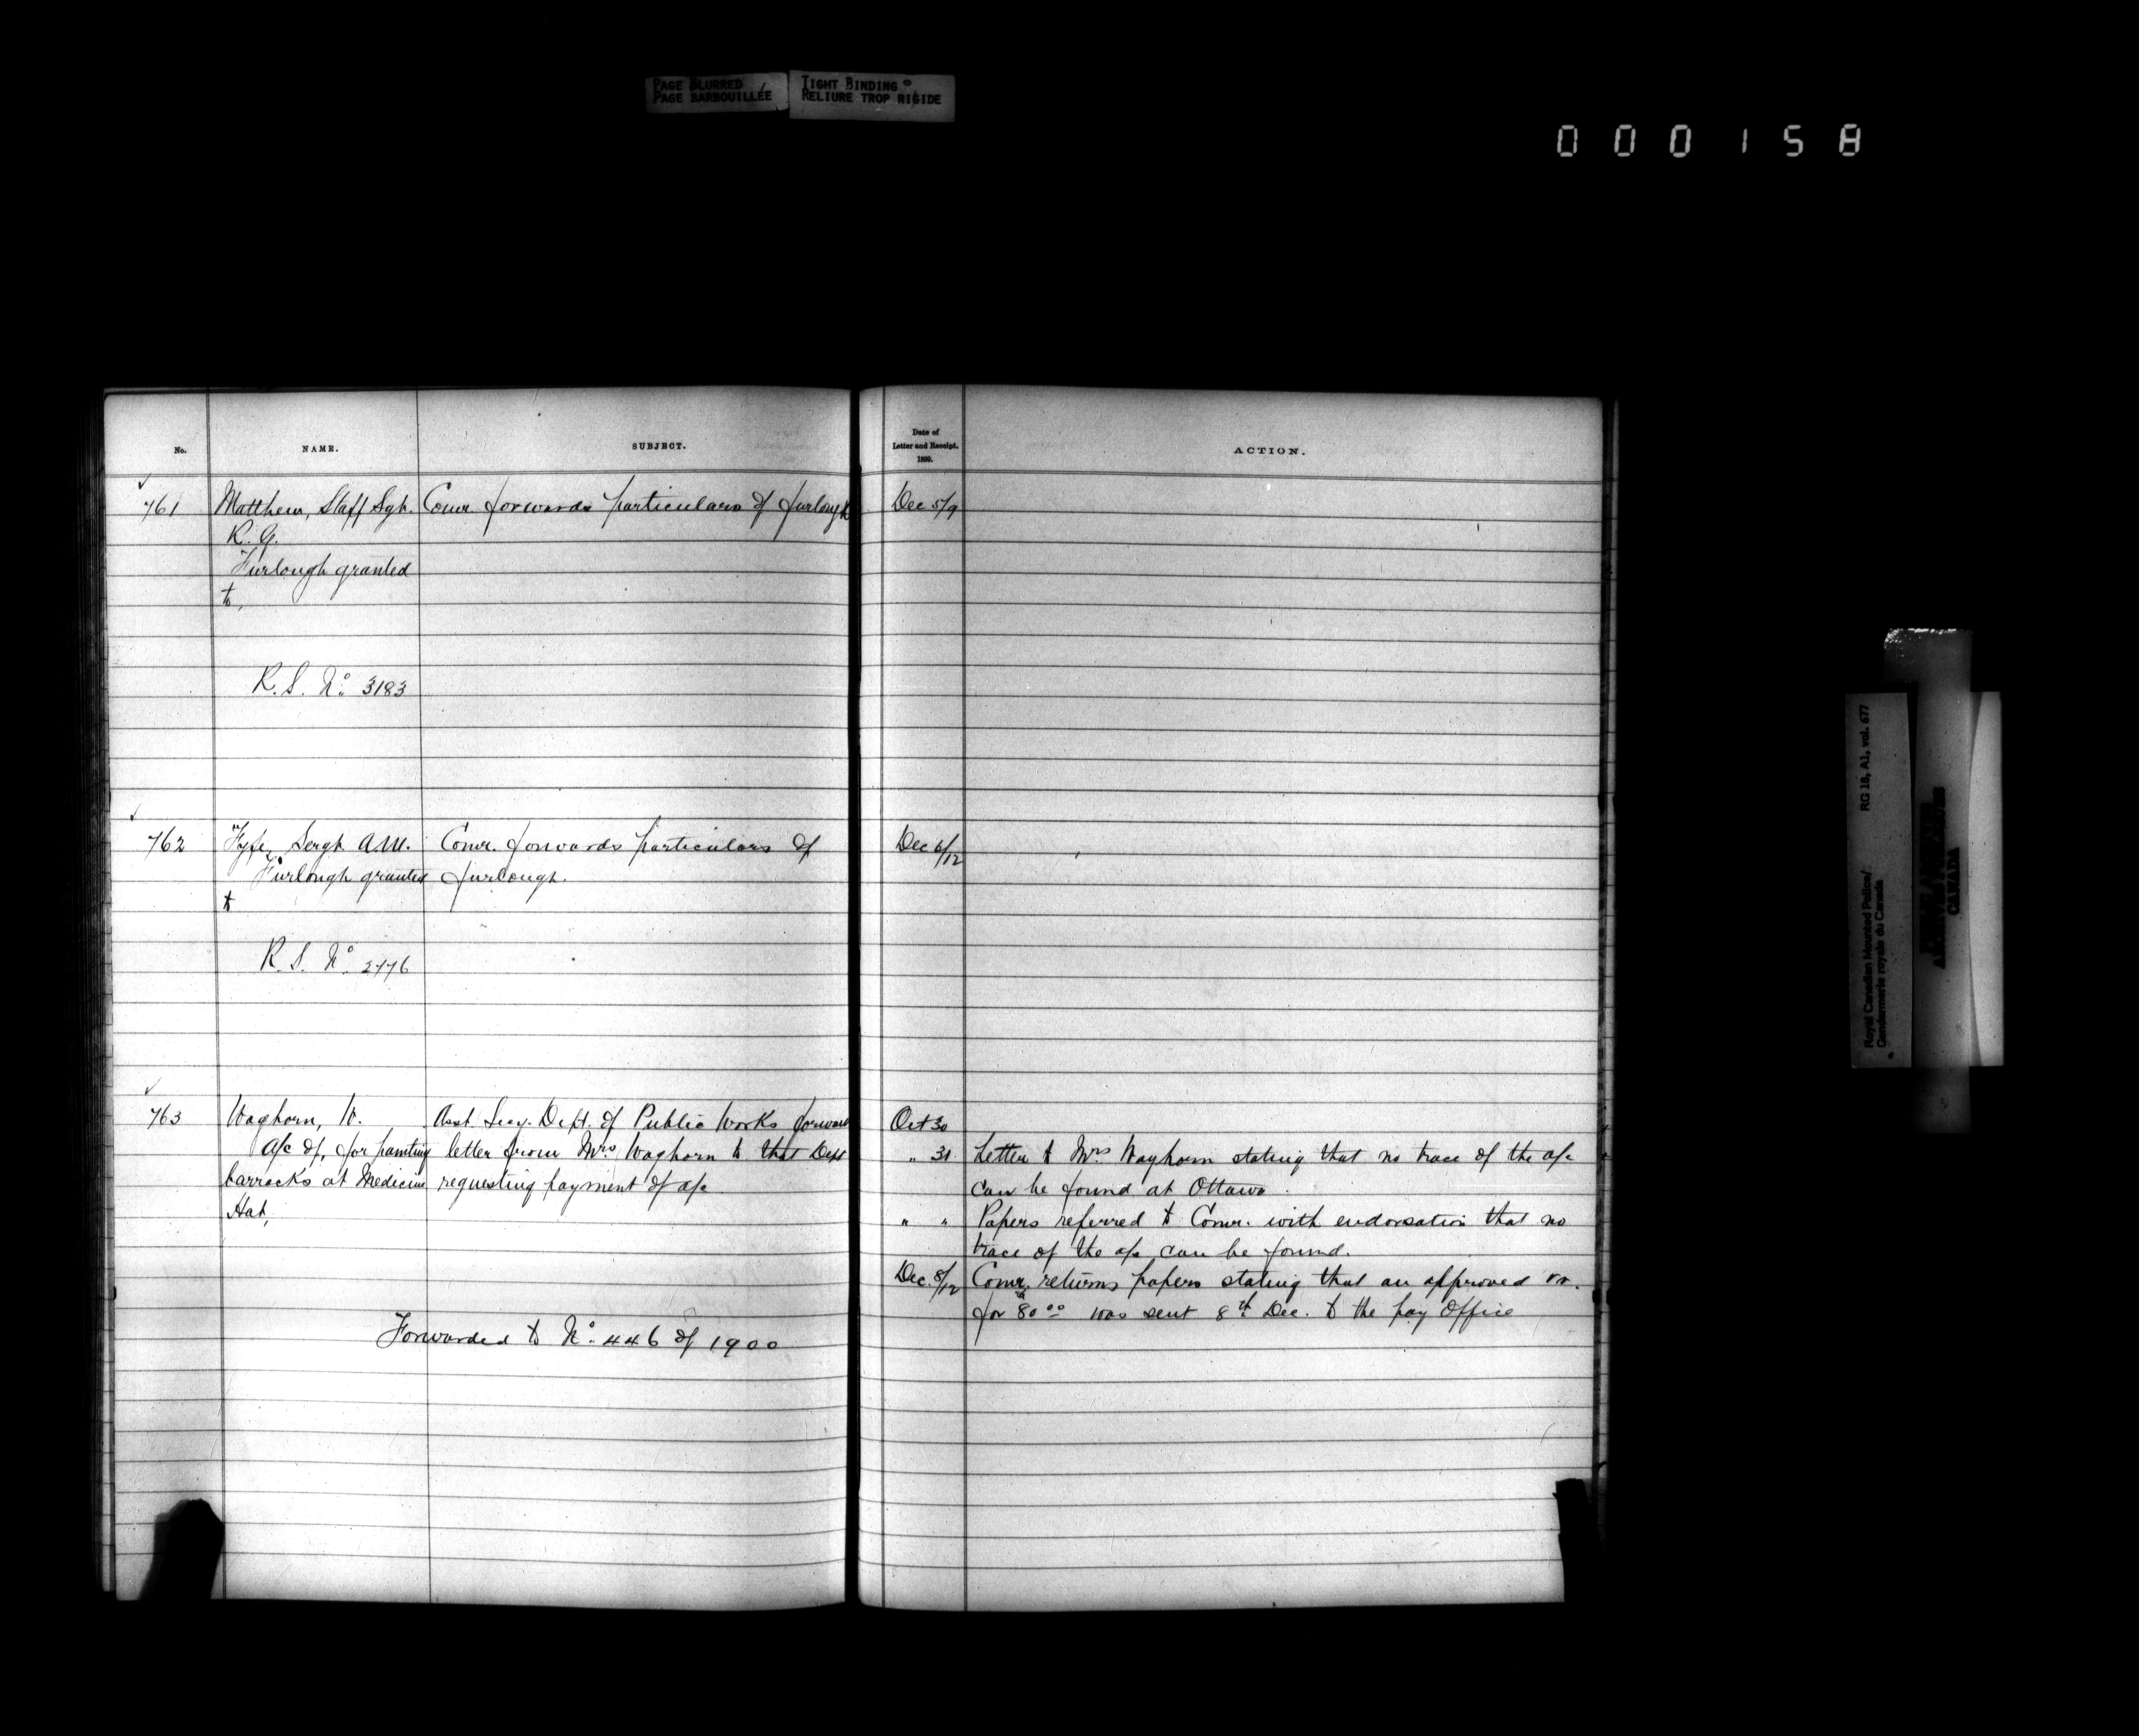 PAGE BLURRED
PAGE BARBOUILLÉE
TIGHT BINDING
RELIURE TROP RIGIDE
000158
No.
NAME.
SUBJECT.
761
Matthew, Staff Sgt.
R. G.
Furlough granted
to,
R. S. No. 3183
Comr. forwards particulars of furlough
762
Fyfe, Sergt. A.M.
Furlough granted
to
R. S. No. 2776
Comr. forwards particulars of
furlough.
763
Waghorn, W.
A/c of, for painting
barracks at Medicine
Hat,
Asst Secy. Dept. of Public Works forward
letter from Mrs Waghorn to that Dept
requesting payment of a/c
Forwarded to No. 446 of 1900
Date of
Letter and Receipt.
1899.
ACTION.
Dec 5/9
Dec 6/12
Oct 30
" 31 Letter to Mrs Waghorn stating that no trace of the a/c
can be found at Ottawa.
" " Papers referred to Comr. with endorsation that no
trace of the a/c can be found.
Dec. 8/12 Comr. returns papers stating that an approved vr.
for 80 00 was sent 8th Dec. to the pay office
RG 18, A1, vol. 677
Royal Canadian Mounted Police/
Gendarmerie royale du Canada
CANADA